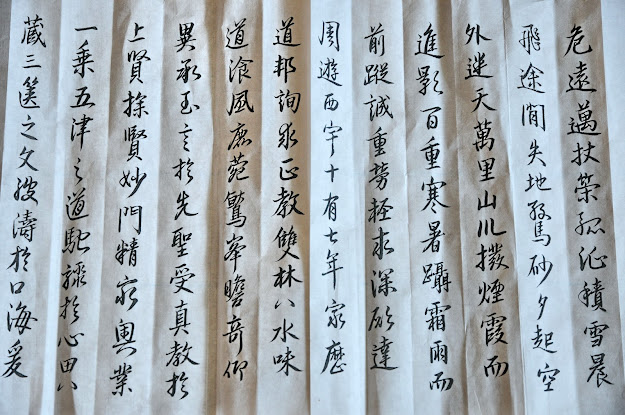 危遠邁杖策孤征積雪晨
飛途閒失地驚砂夕起空
外迷天萬里山川撥煙霞而
進影百重寒暑躡霜雨而
前蹤誠重勞輕求深願達
周遊西宇十有七年窮歷
道邦詢求正教雙林八水味
道飡風鹿菀鷲峯瞻奇仰
異承至言於先聖受真教於
上賢探賾妙門精窮奧業
一乘五律之道馳驟於心田八
藏三篋之文波濤於口海爰